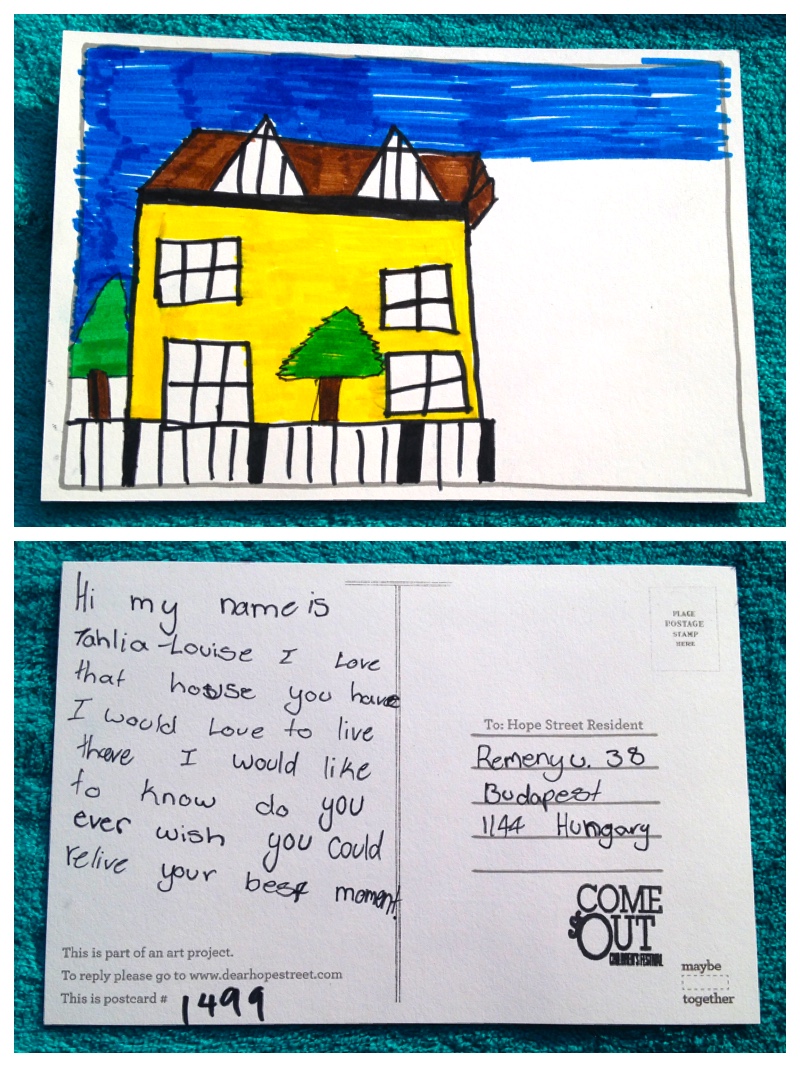 Hi my name is
Tahlia-Louise I Love
that house you have
I would Love to live
there I would like
to know do you
ever wish you could
relive your best moment
This is part of an art project.
To reply please go to www.dearhopestreet.com
This is postcard # 1499
PLACE
POSTAGE
STAMP
HERE
To: Hope Street Resident
Remeny u. 38
Budapest
1144 Hungary
COME
OUT
CHILDREN'S FESTIVAL
maybe
together